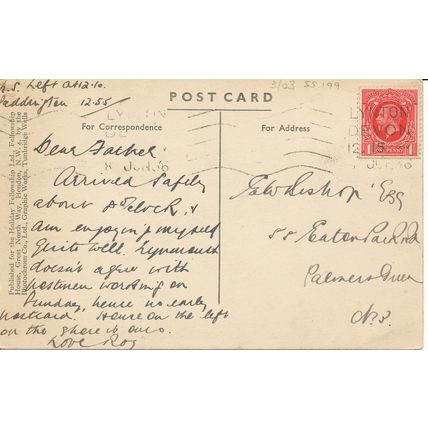 P.S. Left at 12.10.
Paddington 12.55
3/03 SS 199
POST CARD
For Correspondence
For Address
LYNTON
DEVON
8 JUN 36
LYNTON
DEVON
12 15
8 JUN 36
1 PENNY
Dear Father
Arrived safely
about 5 o'clock, &
am enjoying myself
quite well. Lynmouth
doesn't agree with
postmen working on
Sunday, hence no early
postcard. House on the left
on the shore is ours.
Love Roy
Bishop Esq
55 Eaton Park Rd
Palmers Green
N.
Published for the Holiday Fellowship Ltd., Fellowship
House, Great North Way, Hendon, N.W.4, by the
Photochrom Co., Ltd., Graphic Works, Tunbridge Wells